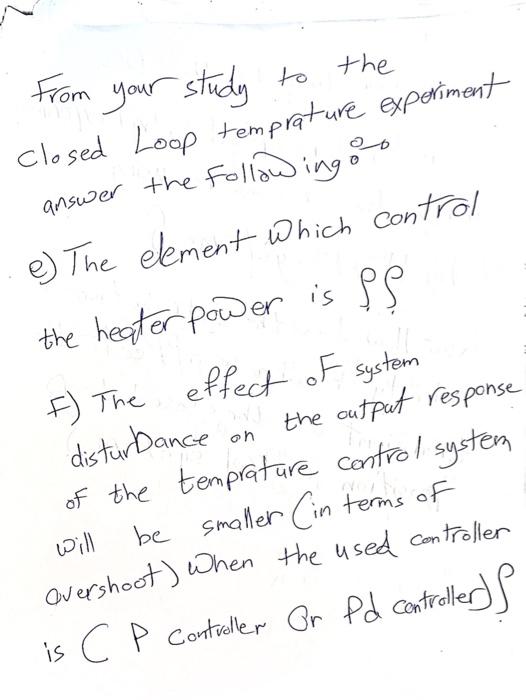 From your study to the
closed Loop temprature experiment
answer the Following:-
e) The element which control
the heater power is ??
F) The effect of system
disturbance on the output response
of the temprature control system
will be smaller (in terms of
overshoot) when the used controller
is ( P controller Or Pd controller)?